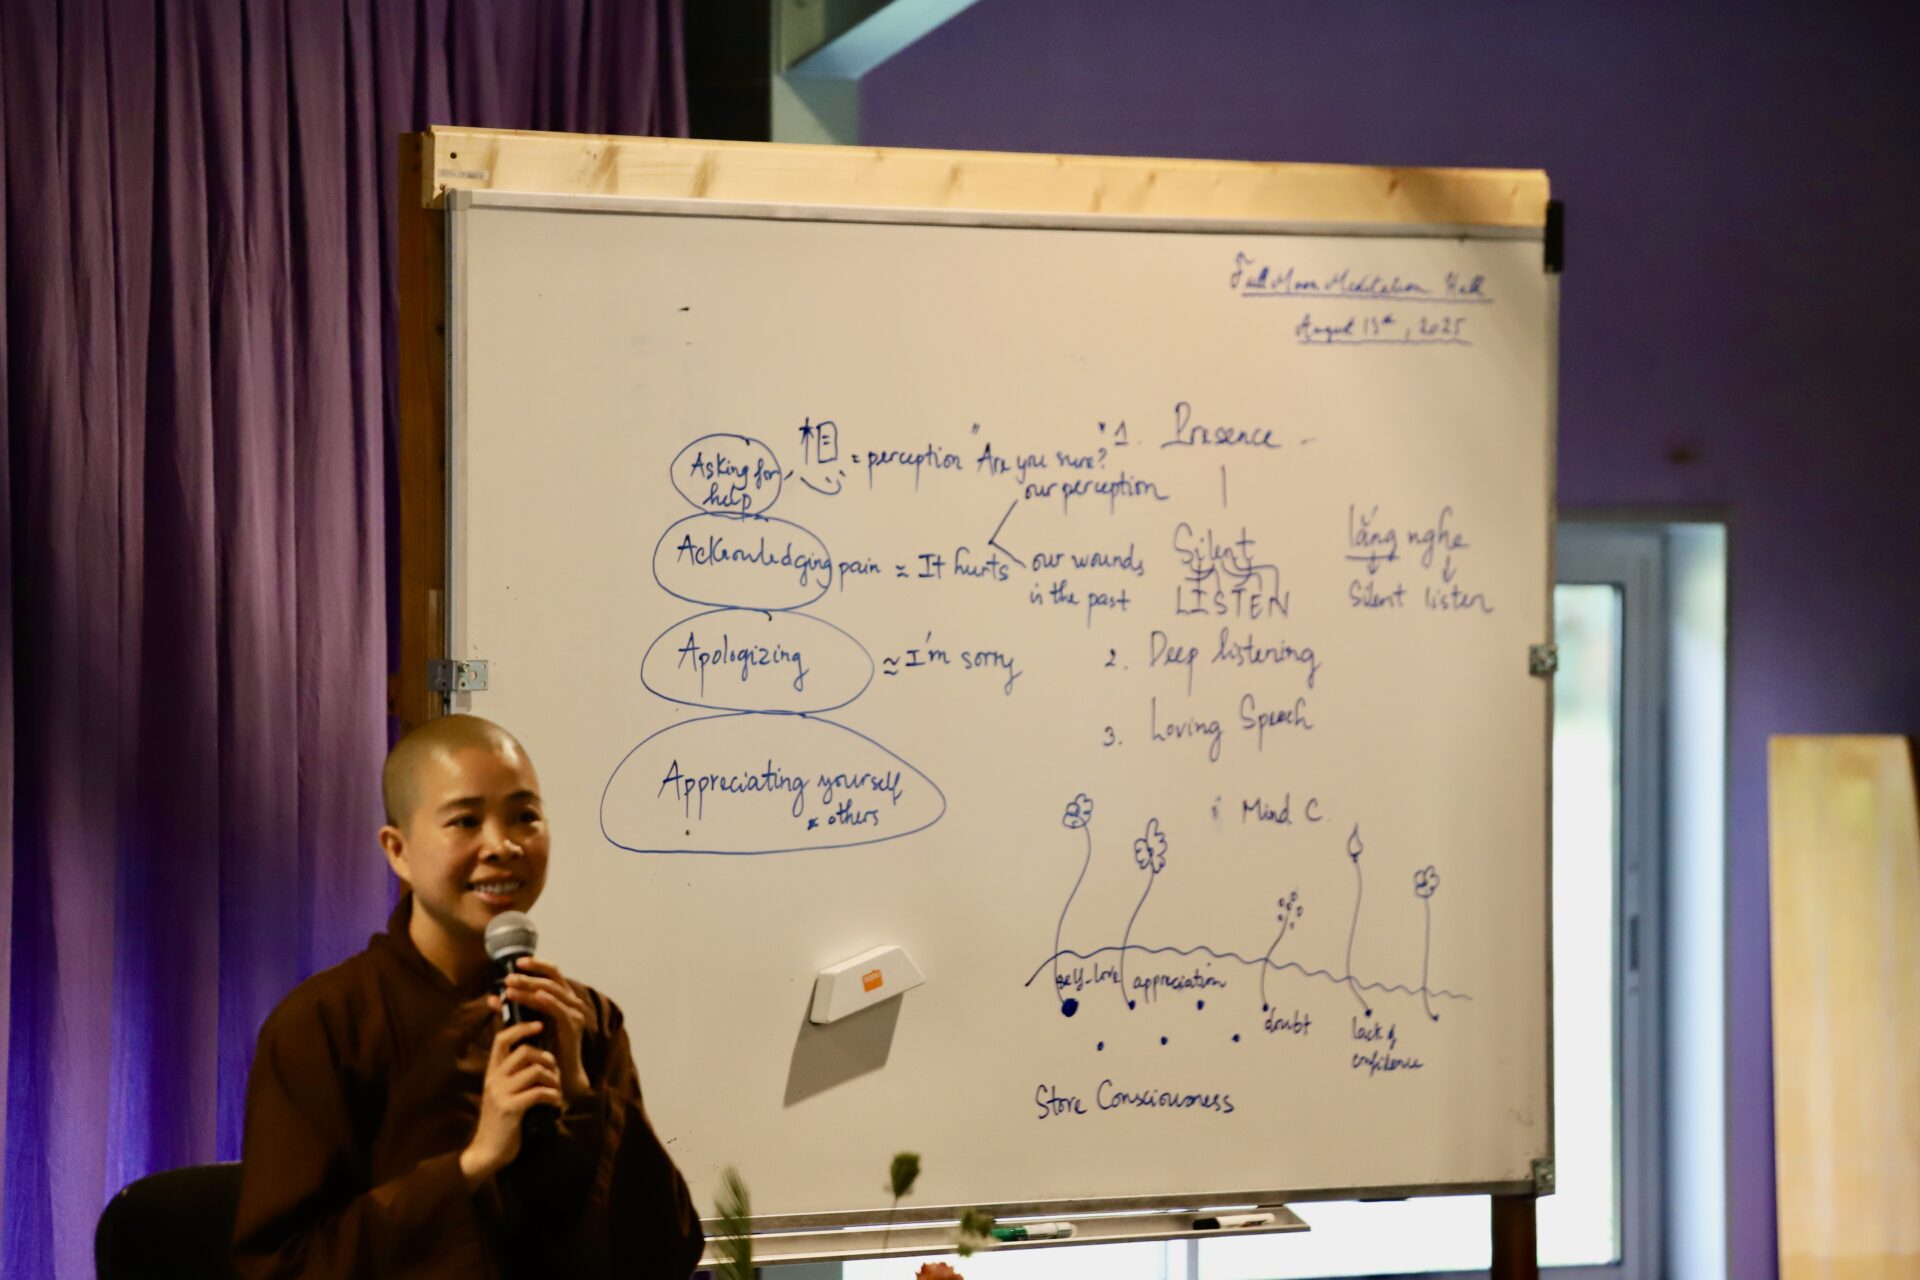 Full Moon Meditation Hall
August 13th, 2025
Asking for
help
= perception "Are you sure?"
Acknowledging pain ≈ It hurts
our perception
our wounds
in the past
Apologizing ≈ I'm sorry
Appreciating yourself
& others
1. Presence
Silent
LISTEN
lắng nghe
Silent listen
2. Deep listening
3. Loving Speech
Mind C.
self-love appreciation
doubt
lack of
confidence
Store Consciousness